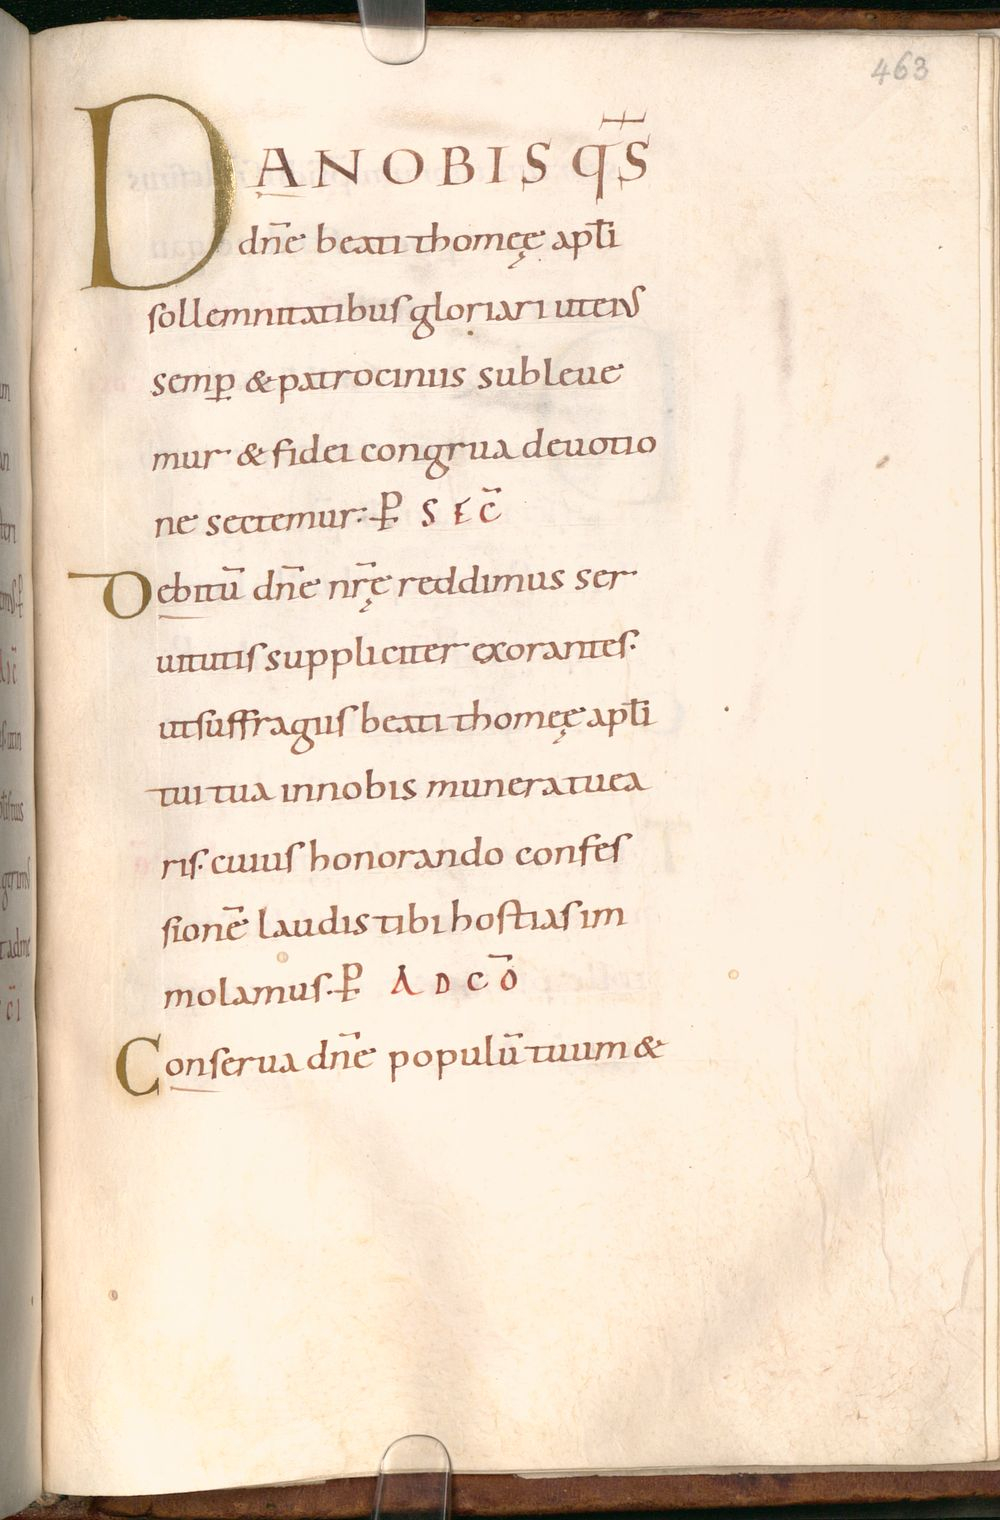 463
DA NOBIS q̄S
dn̄e beati thomęę apłi
sollemnitatibus gloriari ut eius
semp̱ & patrociniis subleue
mur & fidei congrua deuotio
ne sectemur. P̱ SEC̄
Debitū dn̄e nr̄ę reddimus ser
uitutis suppliciter exorantes.
ut suffragiis beati thomęę apłi
tui tua in nobis munera tuea
ris. cuius honorando confes
sionē laudis tibi hostias im
molamus. P̱ AD CŌ
Conserua dn̄e populū tuum &